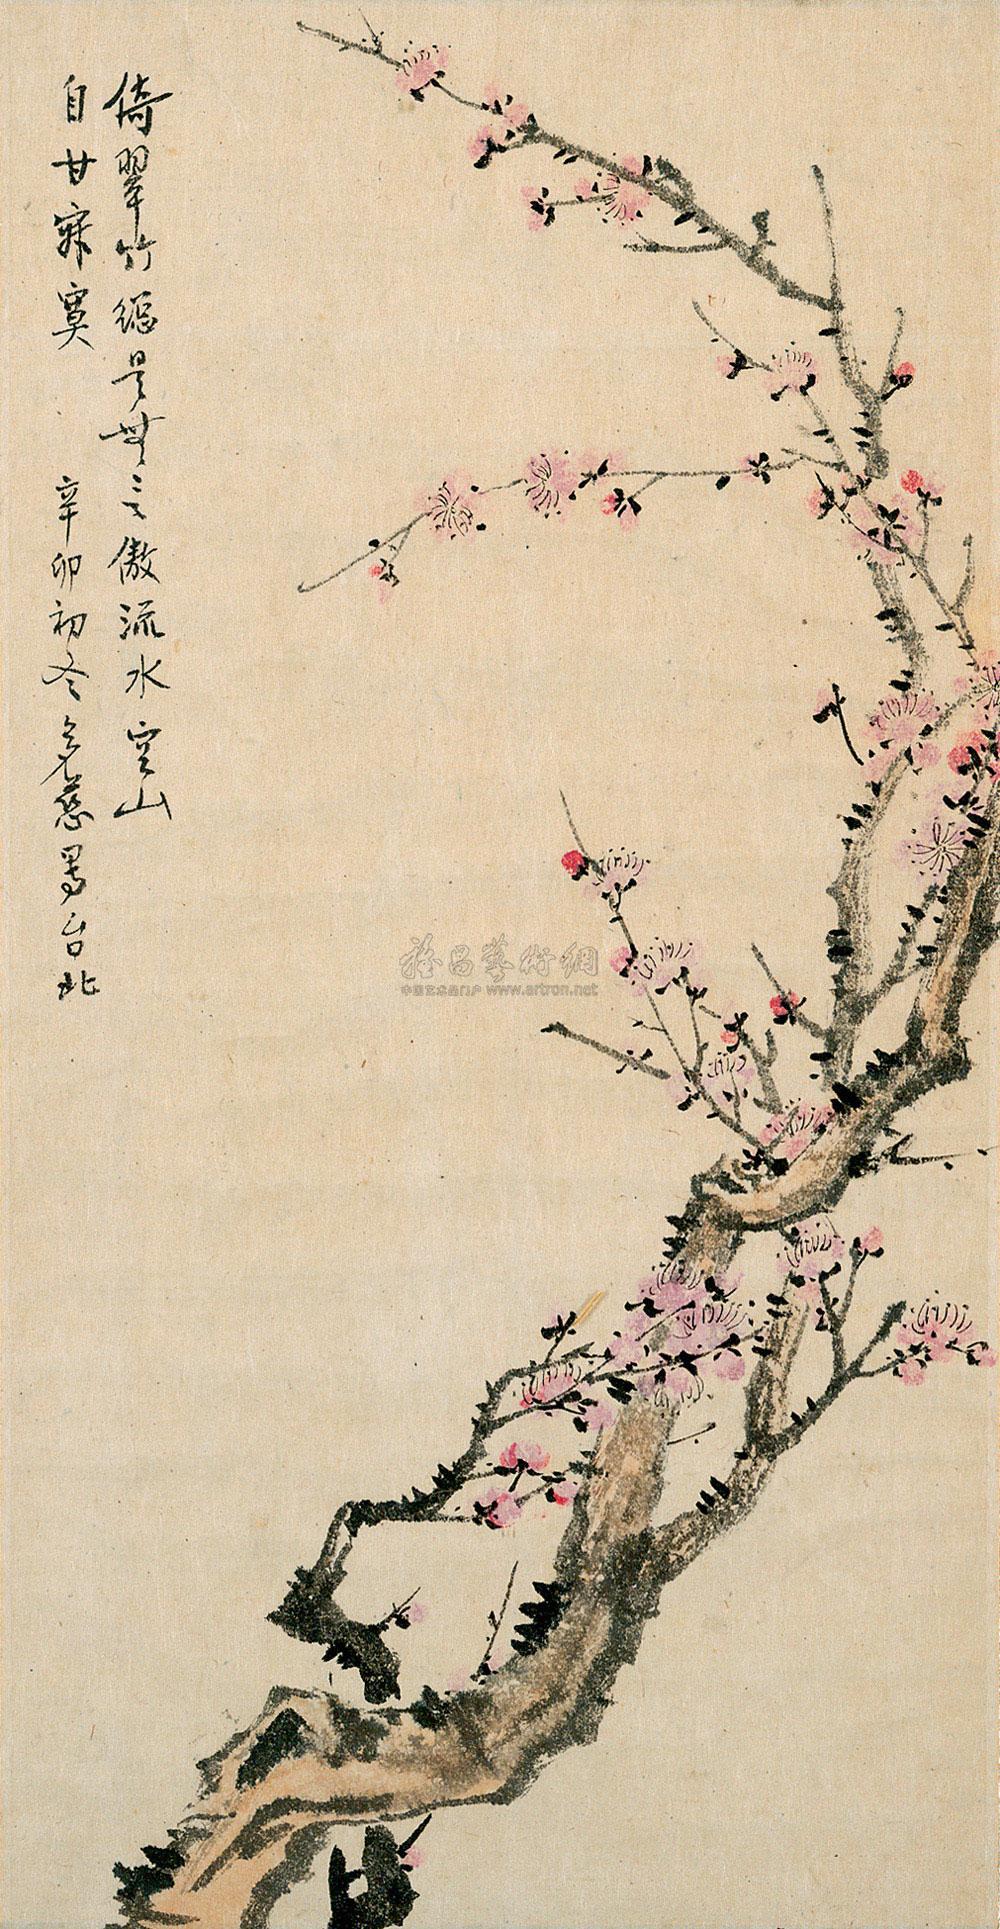 倚翠竹總是無言傲流水空山
自甘寂寞
辛卯初冬多慈寫台北
雅昌藝術網
中国艺术品门户 www.artron.net